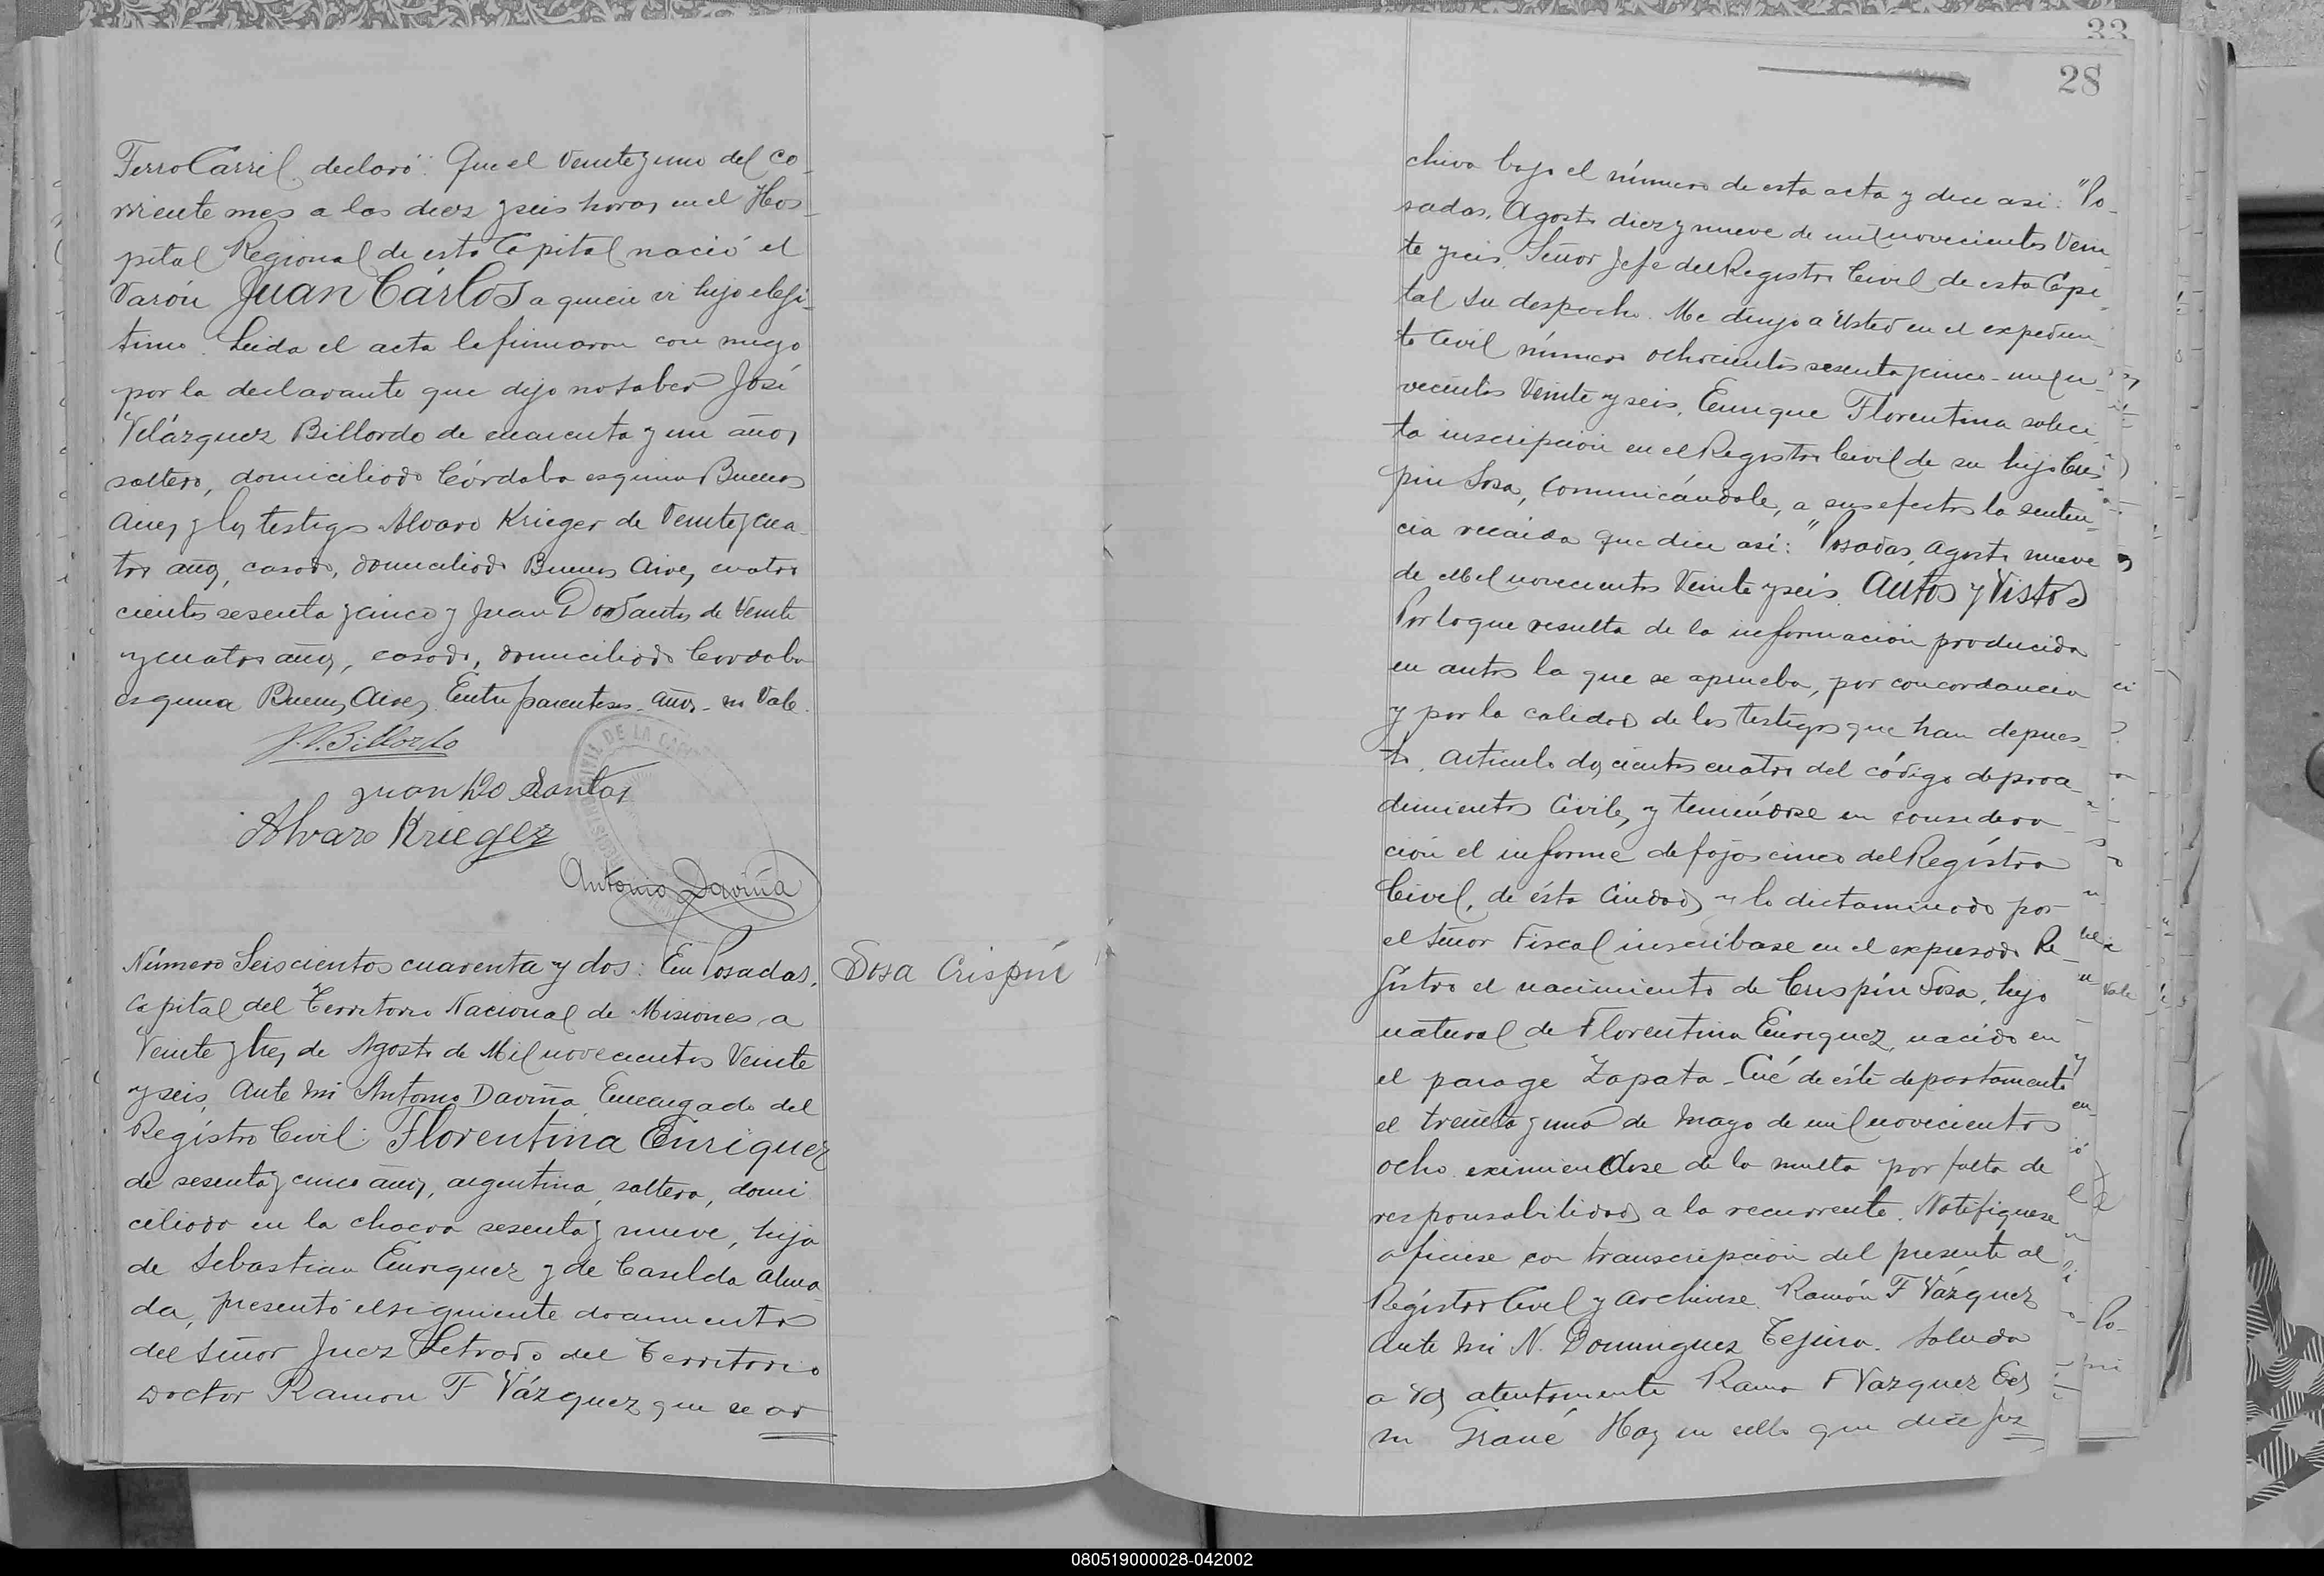 FerroCarril declaró: Que el veinte y uno del co-
rriente mes a las diez y seis horas en el Hos-
pital Regional de esta Capital nació el
varón Juan Cárlos a quien vi hijo ilegí-
timo. Leida el acta la firmaron con migo
por la declarante que dijo no saber José
Velázquez Billordo de cuarenta y un años
soltero, domiciliado Córdoba esquina Buenos
Aires y los testigos Alvaro Krieger de veinte y cua-
tro años, casado, domiciliado Buenos Aires cuatro
cientos sesenta y cinco y Juan Do Santos de veinte
y cuatro años, casado, domiciliado Cordoba
esquina Buenos Aires. Entre parentesis - años - no vale.
J. V. Billordo
Juan Do Santos
Alvaro Krieger
REGISTRO CIVIL DE LA CAP
Antonio Daviña
Número Seiscientos cuarenta y dos: En Posadas,
Sosa Crispín
Capital del Territorio Nacional de Misiones a
veinte y tres de Agosto de Mil novecientos veinte
y seis, Ante mi Antonio Daviña Encargado del
Registro Civil: Florentina Enriquez
de sesenta y cinco años, argentina, soltera, domi
ciliada en la chacra sesenta y nueve, hija
de Sebastian Enriquez y de Casilda Alma
da, presentó el siguiente documento
del Señor Juez Letrado del Territorio
Doctor Ramon F Vázquez que se ar
33
28
chiva bajo el número de esta acta y dice asi: "Po-
sadas, Agosto diez y nueve de mil novecientos vein-
te y seis. Señor Jefe del Registro Civil de esta Capi-
tal su despacho. Me dirijo a Usted en el expedien-
te civil número ochocientos sesenta y cinco - mil no-
vecientos veinte y seis, Enrique Florentina solici-
ta inscripción en el Registro Civil de su hijo Cris-
pin Sosa, comunicándole, a sus efectos la senten-
cia recaida que dice asi: "Posadas, agosto nueve
de Mil novecientos veinte y seis. Autos y Vistos
Por lo que resulta de la información producida
en autos la que se aprueba, por concordancia
y por la calidad de los testigos que han depues-
to, articulo doscientos cuatro del código de proce-
dimientos Civiles y teniéndose en considera-
ción el informe de fojas cinco del Registro
Civil, de ésta Ciudad y lo dictaminado por
el Señor Fiscal inscribase en el expresado Re-
gistro el nacimiento de Crispín Sosa, hijo
natural de Florentina Enriquez, nacido en
el parage Zapata-Cué de éste departamento
el treinta y uno de Mayo de mil novecientos
ocho eximiendose de la multa por falta de
responsabilidad a la recurrente. Notifiquese
oficiese con transcripción del presente al
Registro Civil y archivese. Ramón F Vázquez
Ante mi N. Dominguez Tejera. Saluda
a Vd atentamente Ramon F Vazquez
Hay un sello que dice Juz